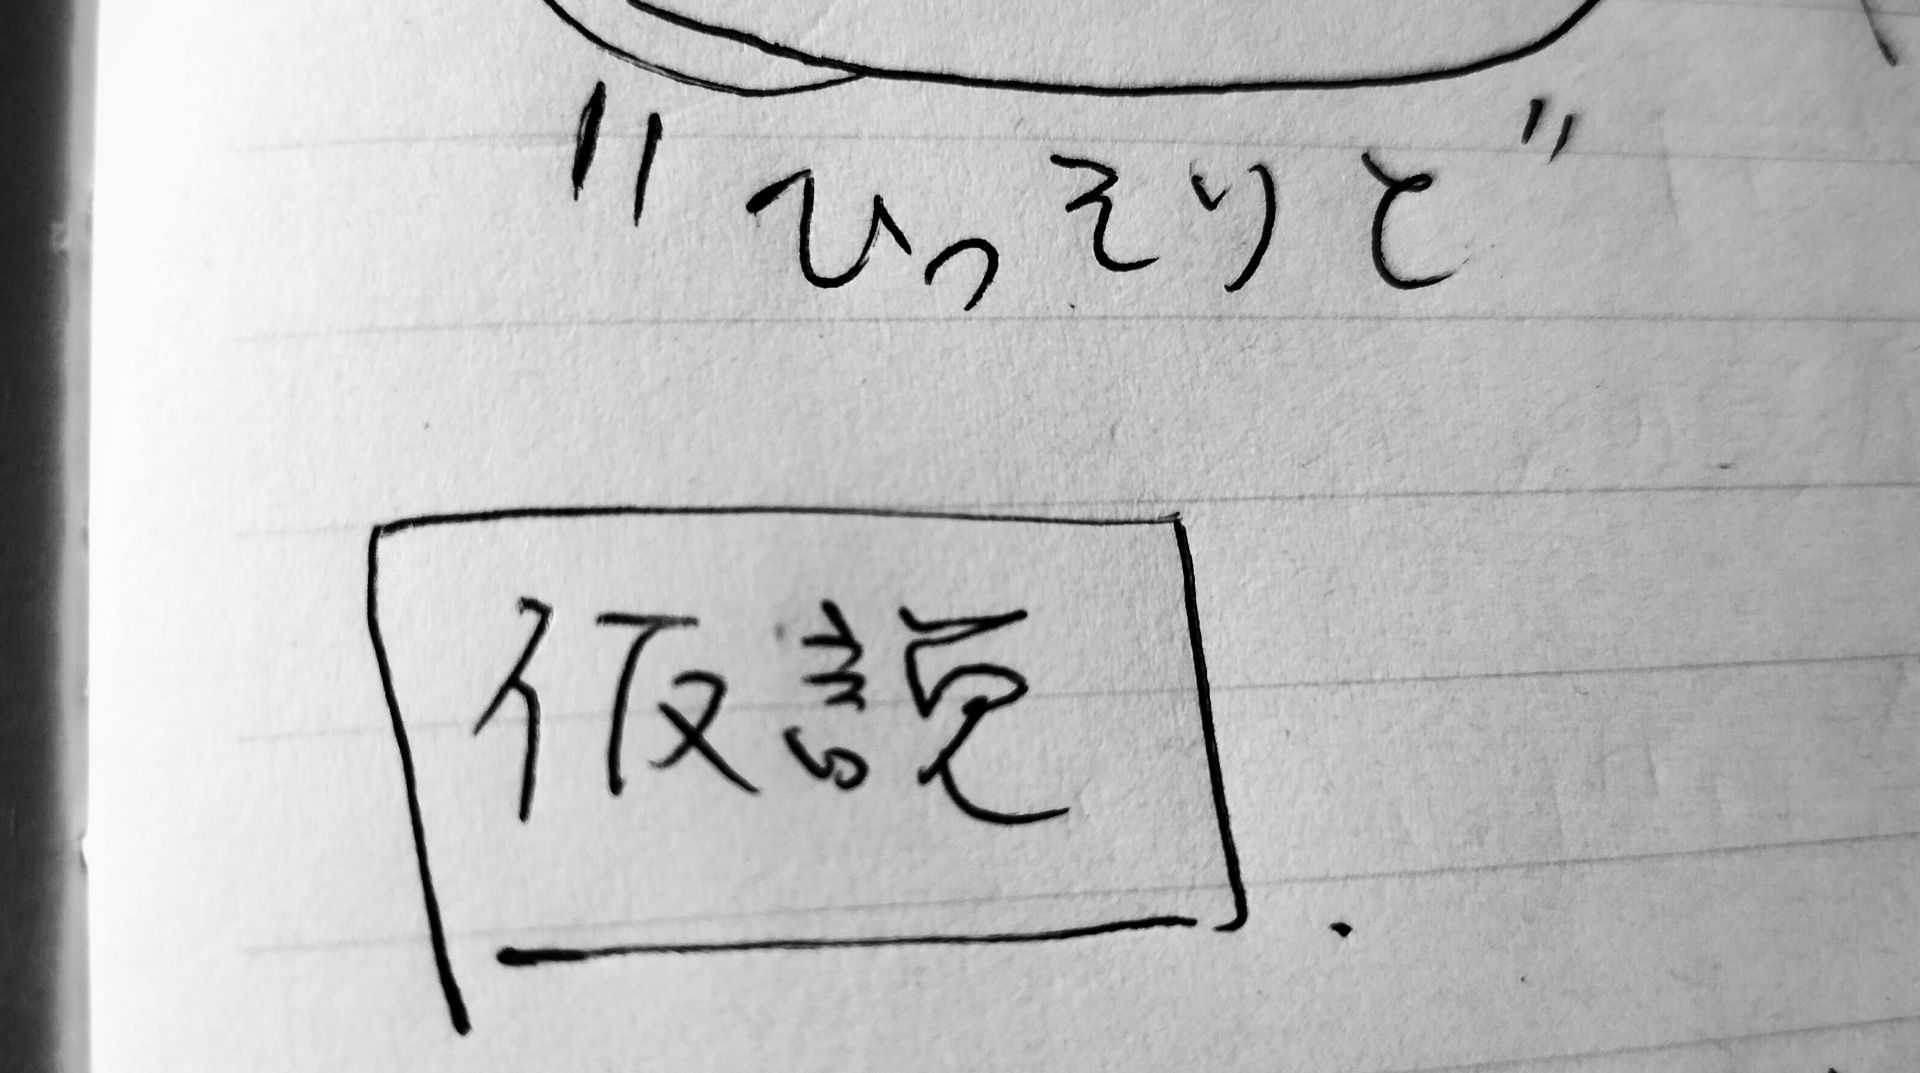 "ひっそりと"
仮説